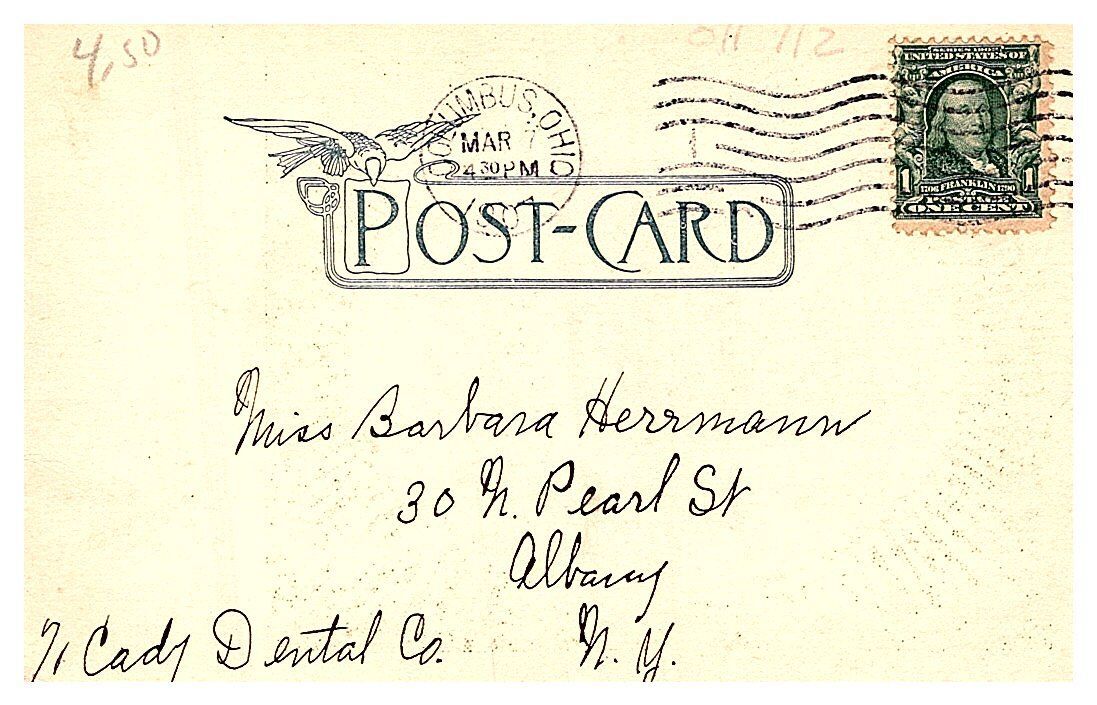 4,50
OH 712
SERIES 1902
UNITED STATES OF
AMERICA
1 1706 FRANKLIN 1790 1
POSTAGE
ONE CENT
COLUMBUS, OHIO
MAR 7
4 30 PM
POST-CARD
Miss Barbara Herrmann
30 N. Pearl St
Albany
N. Y.
Cady Dental Co.